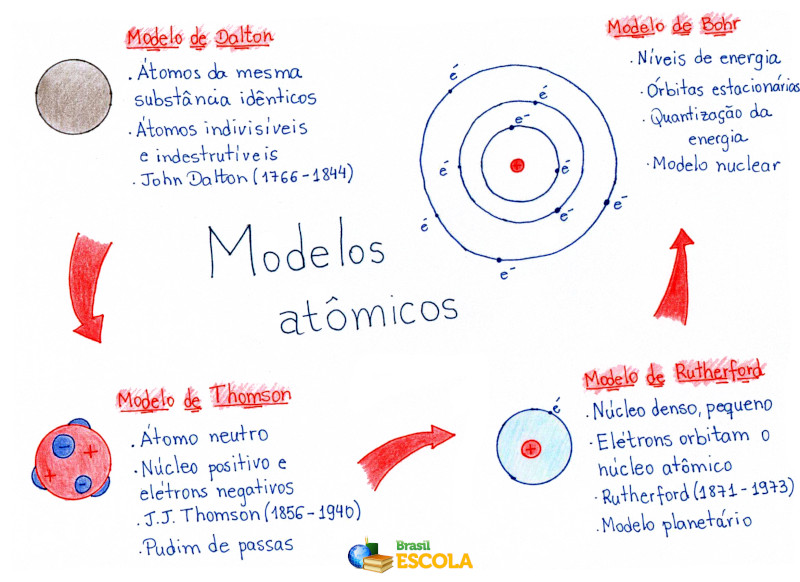 Modelo de Dalton
. Átomos da mesma
substância idênticos
. Átomos indivisíveis
e indestrutíveis
. John Dalton (1766-1844)
Modelos
atômicos
Modelo de Thomson
. Átomo neutro
. Núcleo positivo e
elétrons negativos
. J.J. Thomson (1856-1940)
. Pudim de passas
- - - -
+ +
Modelo de Rutherford
. Núcleo denso, pequeno
. Elétrons orbitam o
núcleo atômico
. Rutherford (1871-1973)
. Modelo planetário
e-
+
Modelo de Bohr
. Níveis de energia
. Órbitas estacionárias
. Quantização da
energia
. Modelo nuclear
e-
e-
e-
e-
e-
e-
e-
e-
e-
+
Brasil
ESCOLA